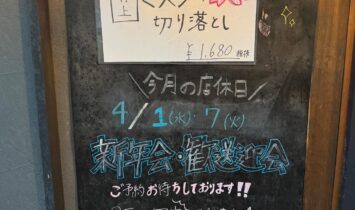 上
切り落とし
¥1,680 税抜
今月の店休日
4/1(水)・7(火)
新年会・歓送迎会
ご予約お待ちしております!!